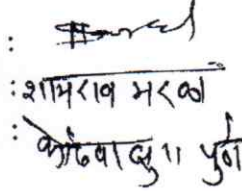 :
: शामराव मरळ
: कोंढवा बु ॥ पुणे